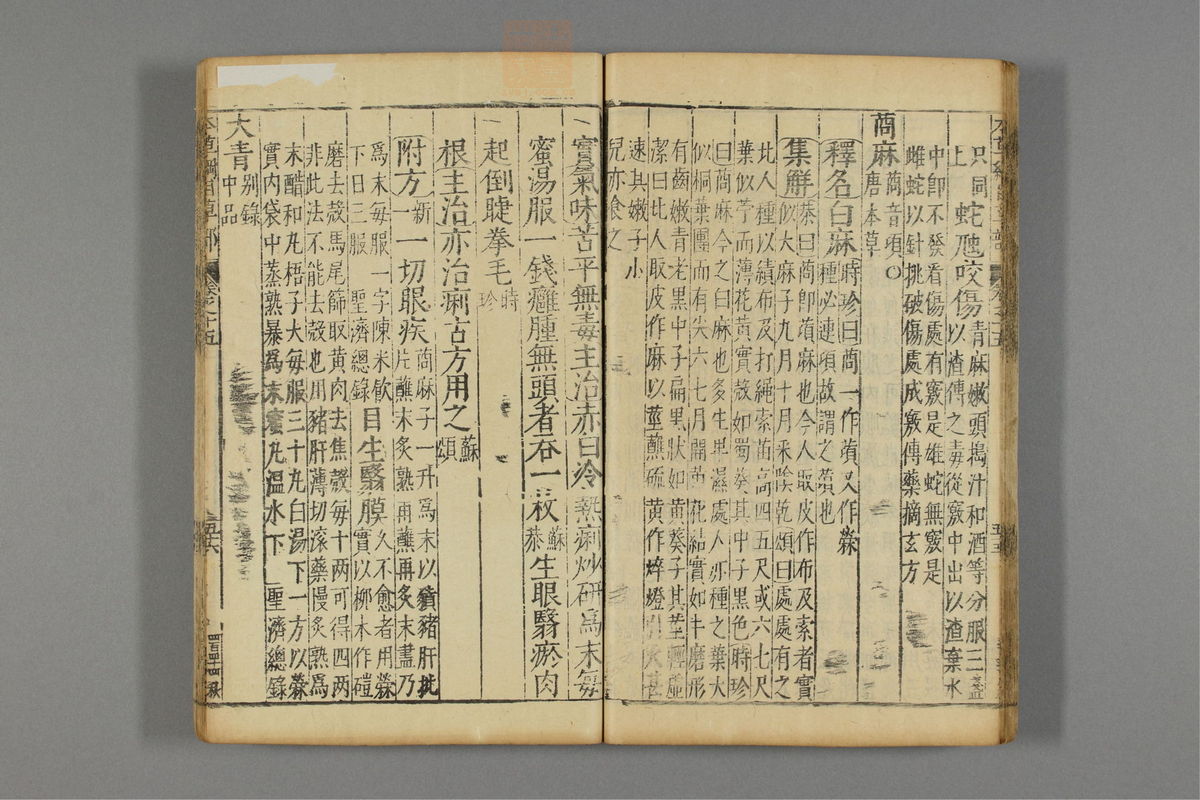 只同上 蛇虺咬傷 青麻嫩頭搗汁和酒等分服三盞
以渣傅之毒從竅中出以渣棄水
中即不發看傷處有竅是雄蛇無竅是
雌蛇以針挑破傷處成竅傳藥摘玄方
䔛麻 䔛音頃〇唐本草
釋名白麻 時珍曰䔛一作蕒又作檾
種必連頃故謂之蕒也
集解 恭曰䔛即蕒麻也今人取皮作布及索者實
似大麻子九月十月采陰乾頌曰處處有之
北人種以績布及打繩索苗高四五尺或六七尺
葉似苧而薄花黃實殼如蜀葵其中子黑色時珍
曰䔛麻今之白麻也多生卑濕處人亦種之葉大
似桐葉團而有尖六七月開黃花結實如半磨形
有齒嫩青老黑中子扁黑狀如黃葵子其莖輕虛
潔白北人取皮作麻以莖蘸硫黃作焠燈引火甚
速其嫩子小
兒亦食之
實氣味苦平無毒主治赤白冷熱痢炒研為末每
蜜湯服一錢癰腫無頭者吞一枚 蘇恭 生眼翳瘀肉
起倒睫拳毛 時珍
根主治亦治痢古方用之 蘇頌
附方 新一 一切眼疾 䔛麻子一升為末以豶豬肝批
片蘸末炙熟再蘸再炙末盡乃
為末每服一字陳米飲
下日三服 聖濟總錄 目生翳膜 久不愈者用檾
實以柳木作磑
磨去殼馬尾篩取黃肉去焦殼每十兩可得四兩
非此法不能去殼也用豬肝薄切滾藥慢炙熟為
末醋和丸梧子大每服三十丸白湯下一方以檾
實內袋中蒸熟暴為末蜜丸溫水下 聖濟總錄
大青 別錄中品